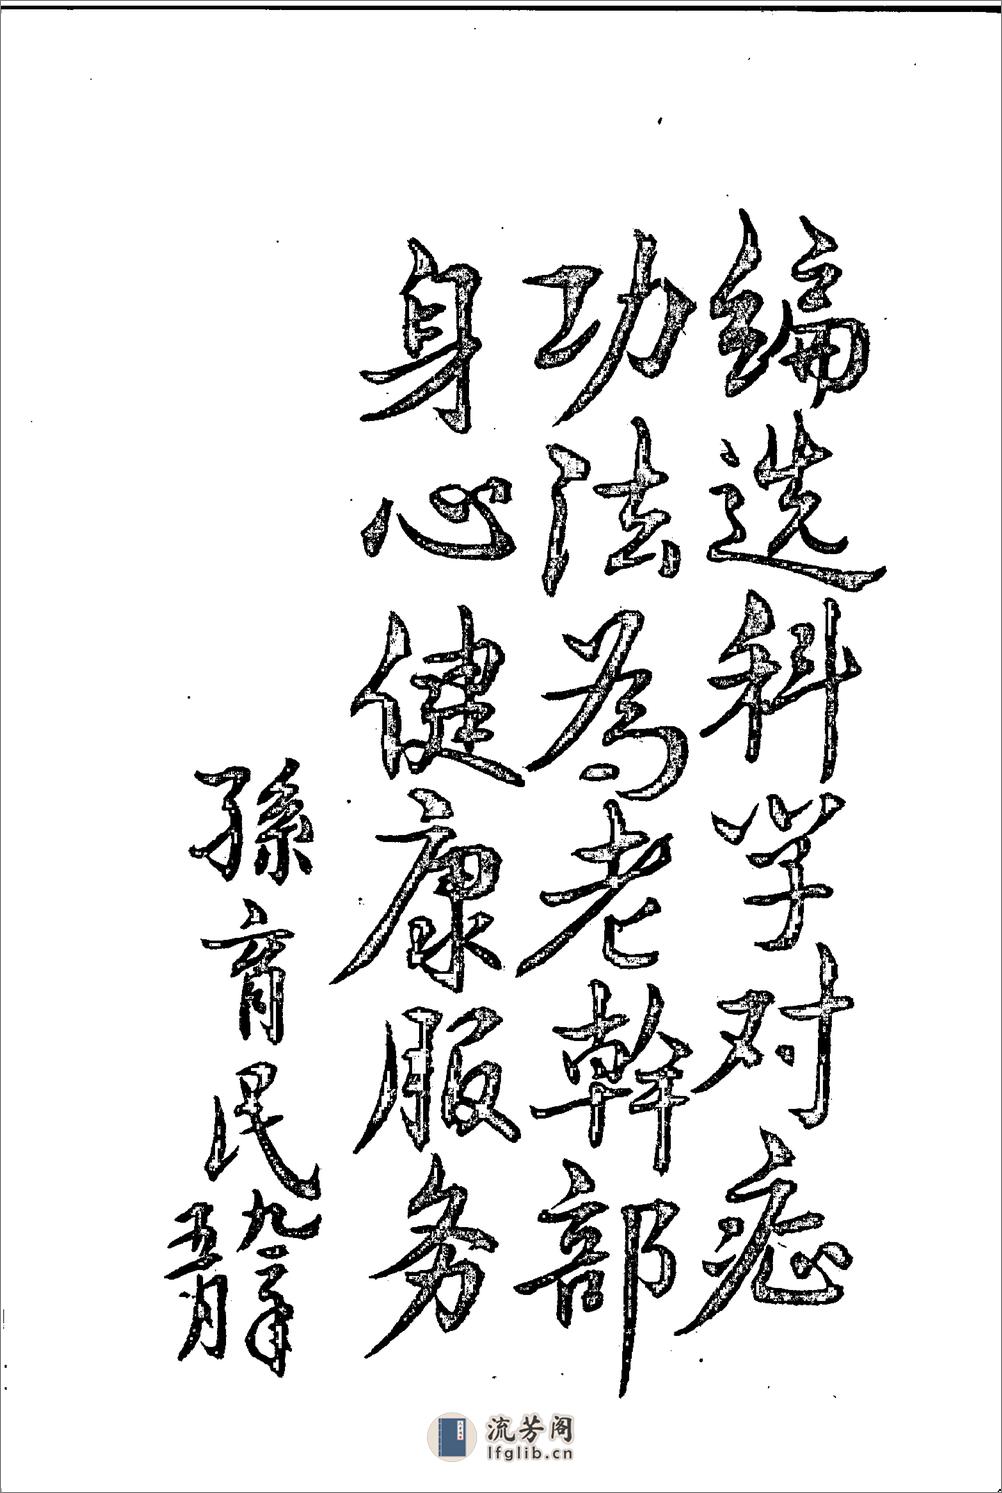 编选科学对症
功法為老幹部
身心健康服务
孫育民
九二年
五月
流芳阁
lfglib.cn